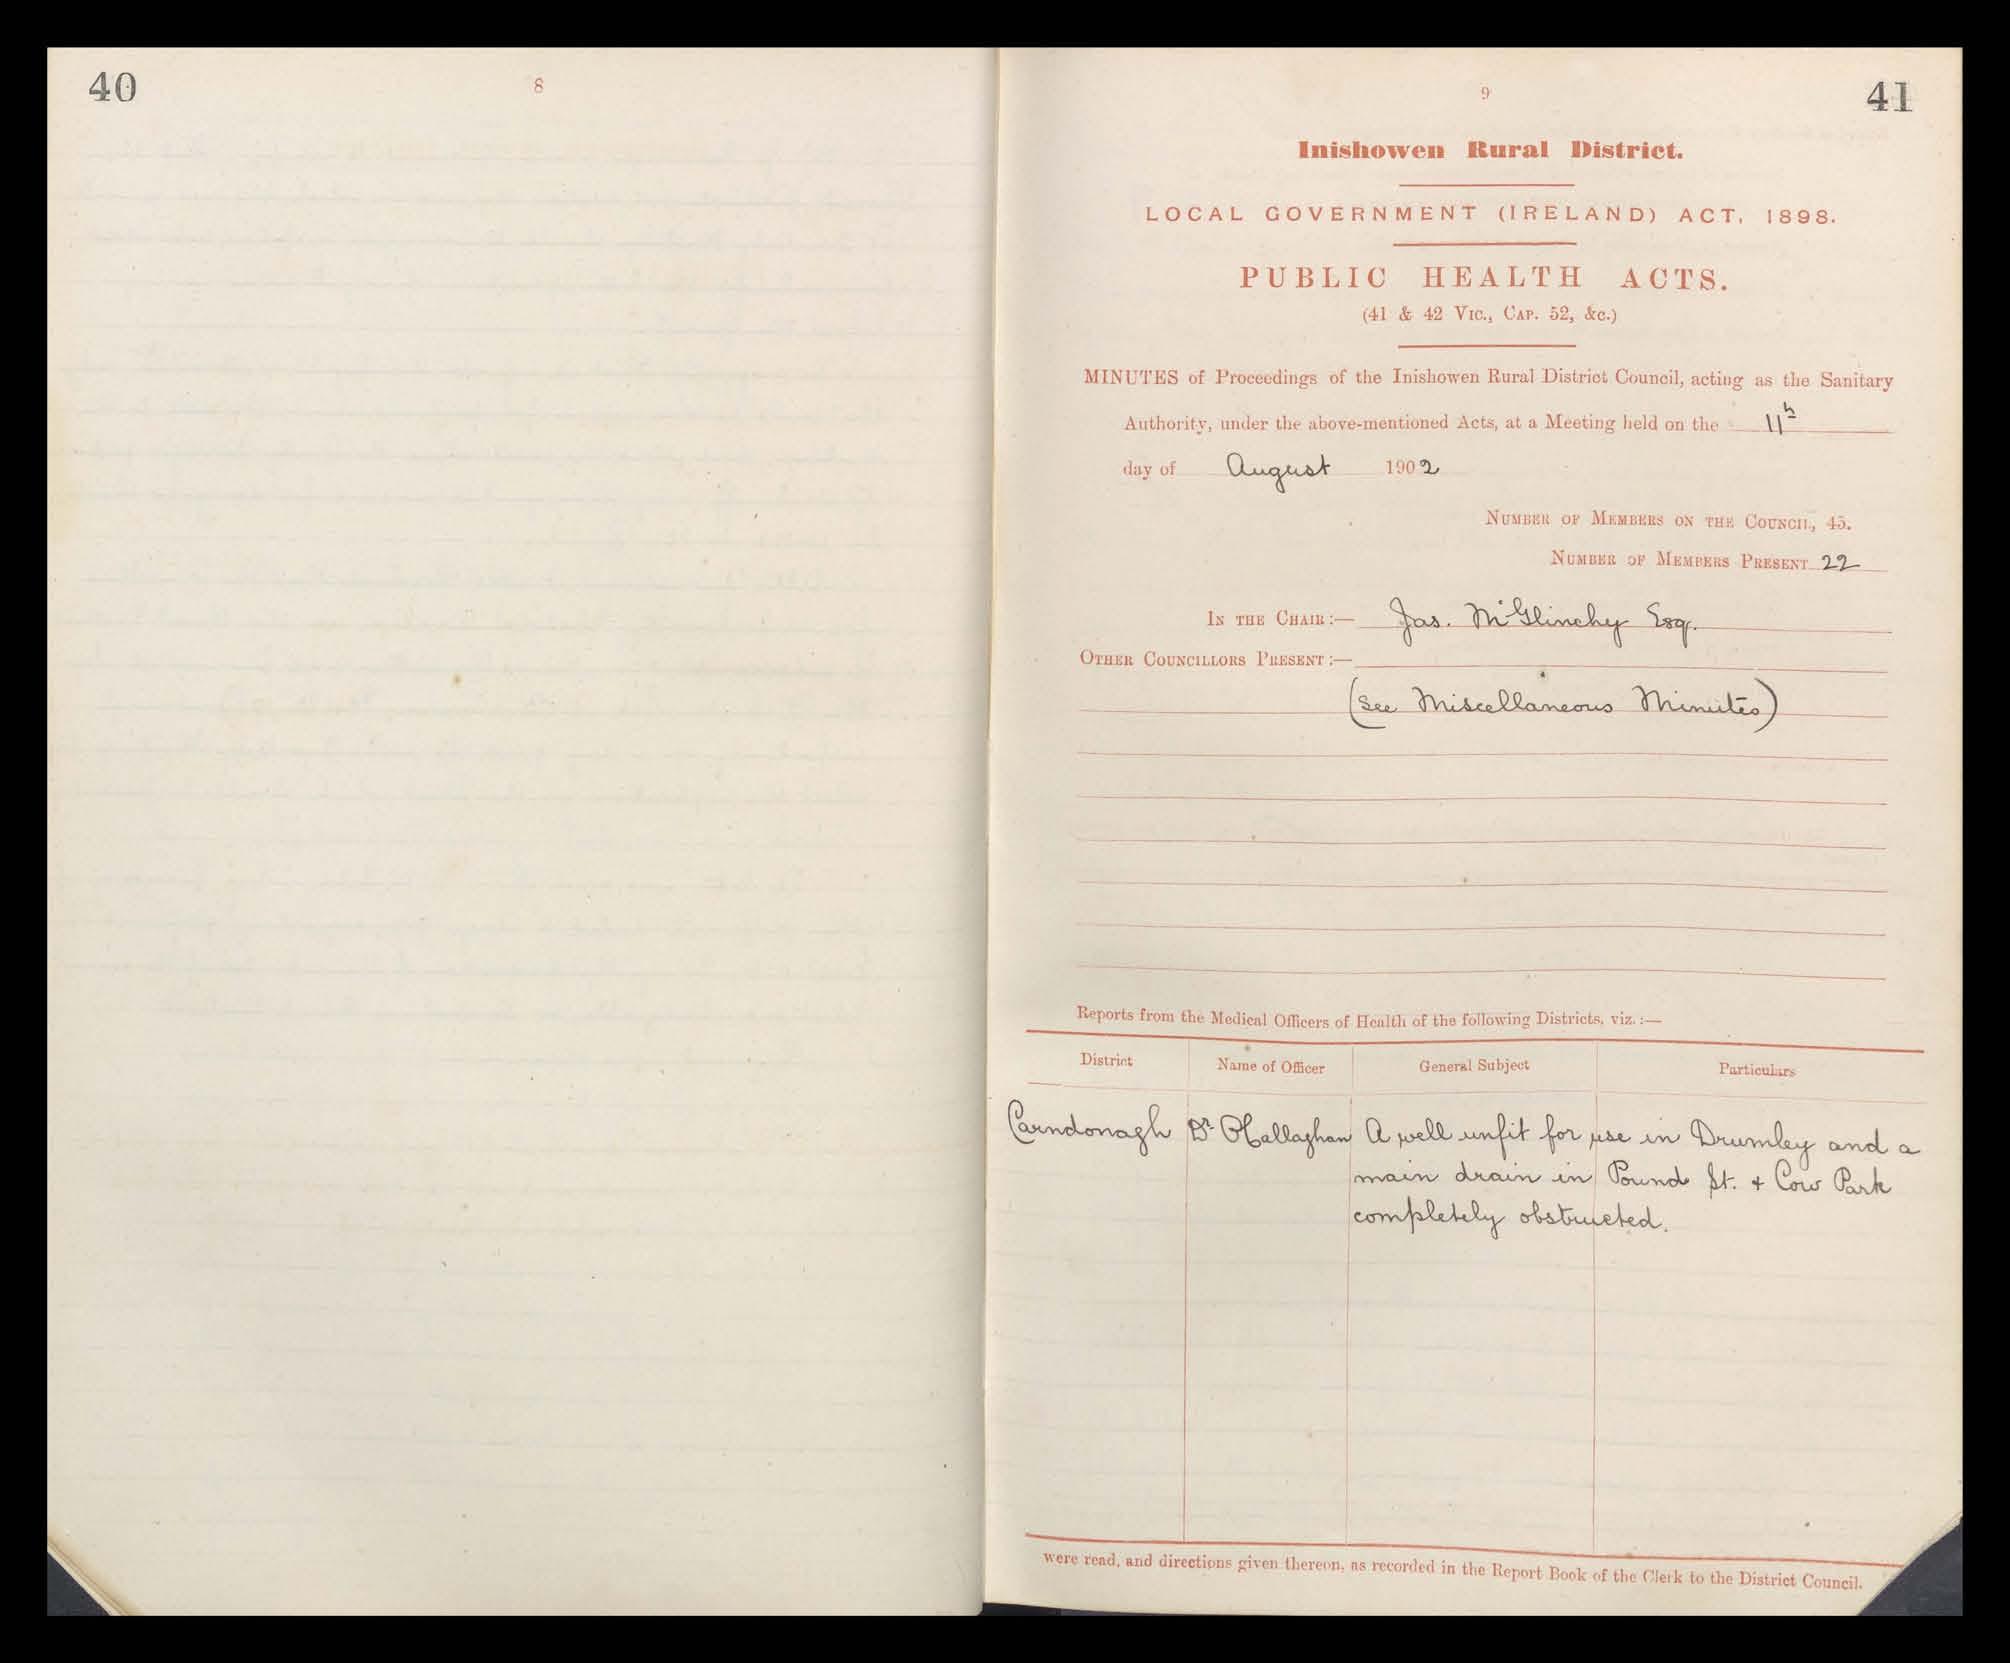 40
8
9
41
Inishowen Rural District.
LOCAL GOVERNMENT (IRELAND) ACT, 1898.
PUBLIC HEALTH ACTS.
(41 & 42 Vic., Cap. 52, &c.)
MINUTES of Proceedings of the Inishowen Rural District Council, acting as the Sanitary
Authority, under the above-mentioned Acts, at a Meeting held on the 11th
day of August 1902
Number of Members on the Council, 45.
Number of Members Present 22
In the Chair:— Jas. McGlinchy Esq.
Other Councillors Present:—
(See Miscellaneous Minutes)
Reports from the Medical Officers of Health of the following Districts, viz.:—
District Name of Officer General Subject Particulars
Carndonagh Dr O'Callaghan A well unfit for use in Drumley and a
main drain in Pound St. + Cow Park
completely obstructed.
were read, and directions given thereon, as recorded in the Report Book of the Clerk to the District Council.